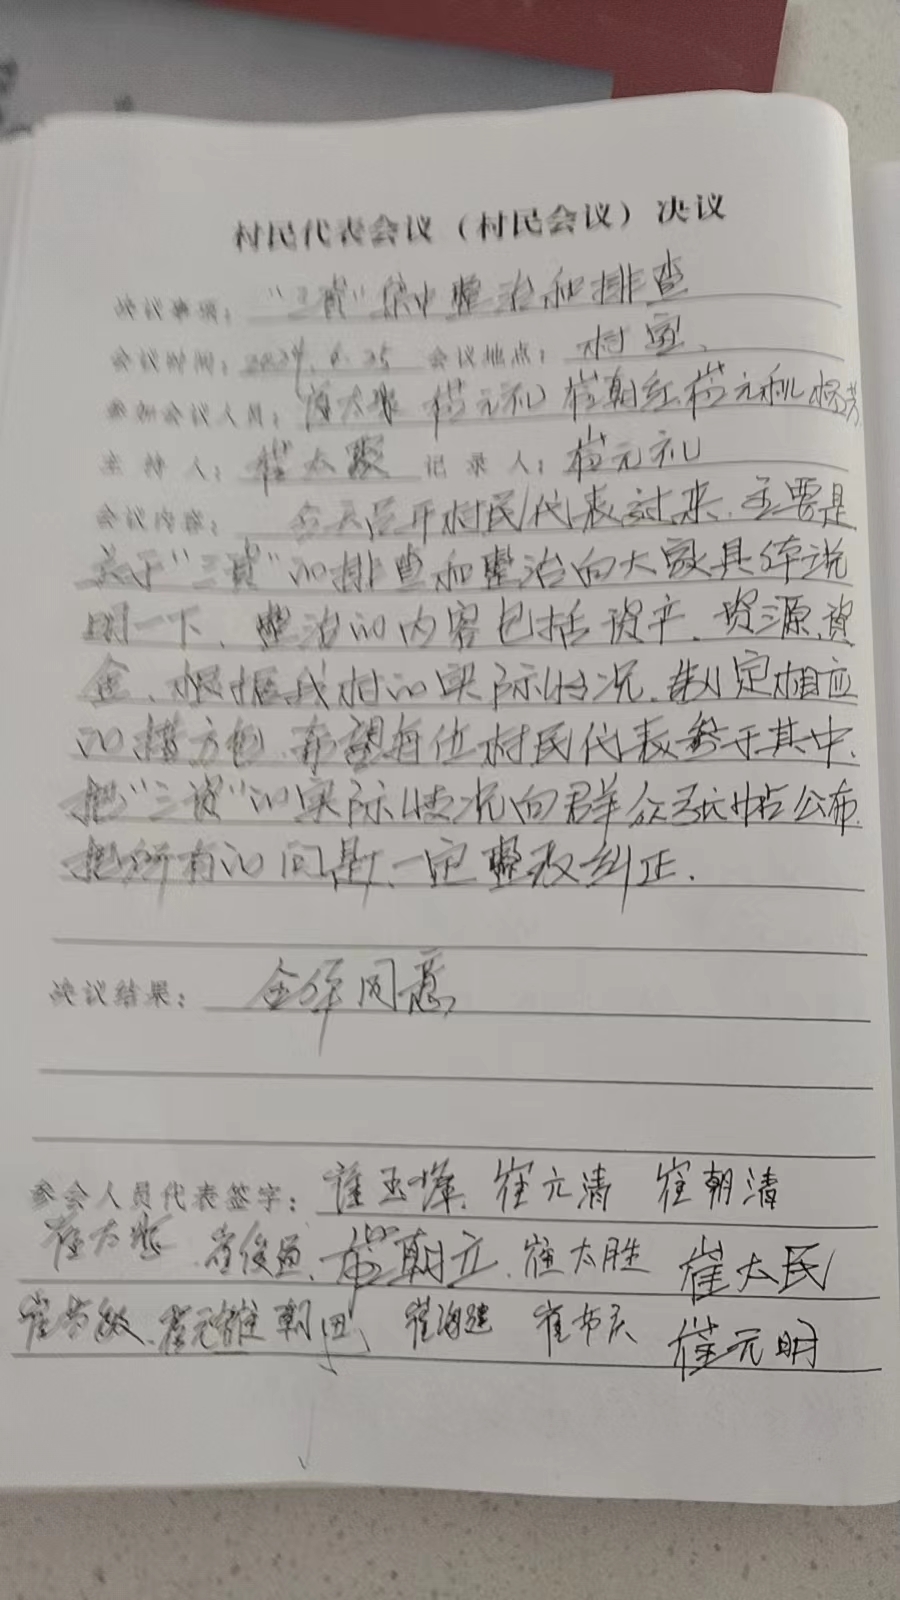 村民代表会议（村民会议）决议
决议事项："三资"集中整治和排查
会议时间：2024.6.25 会议地点：村室、
参加会议人员：崔太聚 崔元礼 崔朝红 崔元利
主持人：崔太聚 记录人：崔元礼
会议内容：今天召开村民代表过来、主要是
关于"三资"的排查和整治向大家具体说
明一下、整治的内容包括资产、资源、资
金、根据我村的实际情况、制定相应
的 方 希望每位村民代表参于其中、
把"三资"的实际情况向群众 公布、
把所有的问题、一定整改纠正.
决议结果：全体同意
参会人员代表签字：崔玉峰、崔元清 崔朝清
崔太聚 崔俊 、崔朝立、崔太胜 崔太民
崔 崔元 崔朝 崔海建 崔 崔元明